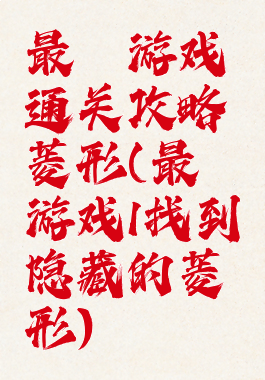 最 游戏
通关攻略
菱形(最
游戏|找到
隐藏的菱
形)